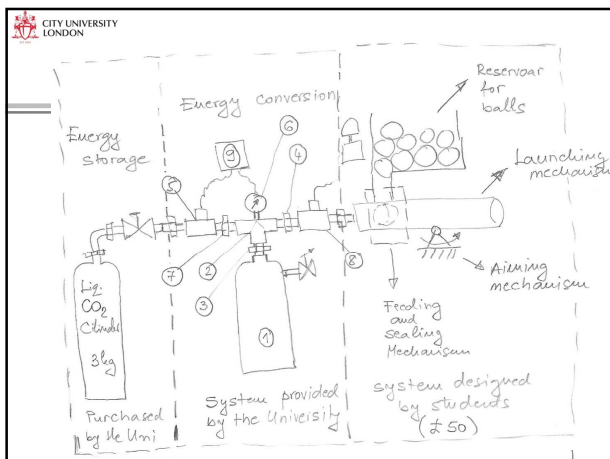 CITY UNIVERSITY
LONDON
Energy
storage
Energy conversion
Reservoar
for
balls
Launching
mechanism
Aiming
mechanism
Feeding
and
sealing
Mechanism
5
9
6
4
7
2
3
8
1
Liq.
CO2
Cilinder
3 kg
Purchased
by the Uni
System provided
by the University
System designed
by students
(£50)